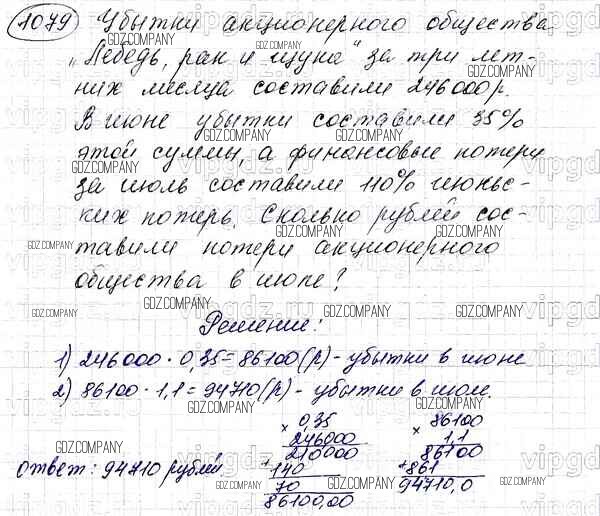 1079 Убытки акционерного общества
„Лебедь, рак и щука“ за три лет-
них месяца составили 246000 р.
В июне убытки составили 35%
этой суммы, а финансовые потери
за июль составили 110% июньс-
ких потерь. Сколько рублей сос-
тавили потери акционерного
общества в июле?
Решение:
1) 246000 · 0,35 = 86100 (р) - убытки в июне
2) 86100 · 1,1 = 94710 (р) - убытки в июл.
× 0,35
246000
210000
+ 140
70
86100,00
× 86100
1,1
86100
+ 861
94710,0
ответ: 94710 рублей
GDZ.COMPANY
vipgdz.ru